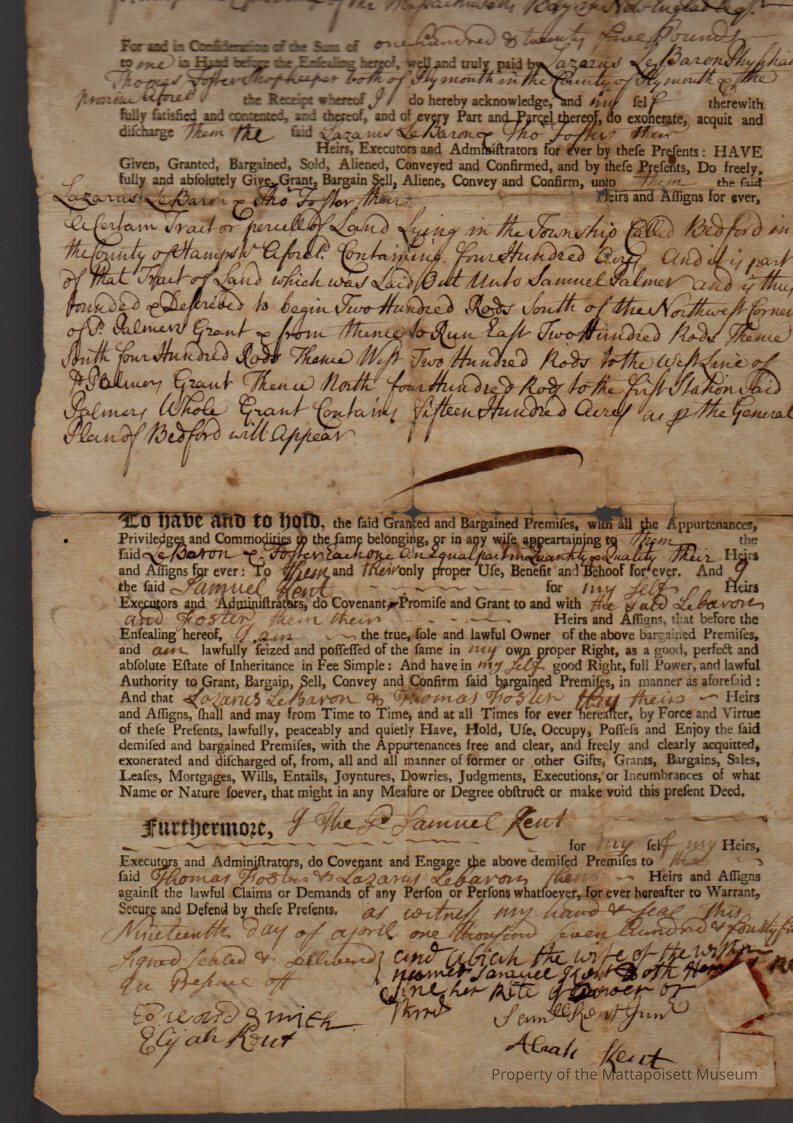 of the Massachusetts Bay in New England Esqr.
For and in Consideration of the Sum of one hundred & twenty five Pounds
to me in Hand before the Ensealing hereof, well and truly paid by Lazarus LeBaron Physician
Thomas Foster Shopkeeper both of Plymouth in the County of Plymouth & the
provine afored the Receipt whereof I do hereby acknowledge, and my self therewith
fully satisfied and contented, and thereof, and of every Part and Parcel thereof, do exonerate, acquit and
discharge them the said Lazarus LeBaron & Tho Foster their
Heirs, Executors and Administrators for ever by these Presents: HAVE
Given, Granted, Bargained, Sold, Aliened, Conveyed and Confirmed, and by these Presents, Do freely,
fully and absolutely Give, Grant, Bargain Sell, Aliene, Convey and Confirm, unto them the said
Lazarus LeBaron & Tho Foster their Heirs and Assigns for ever,
A Certain Tract or percell of Land Lying in the Township Called Bedford in
the County of Hampsr. Aforsd. Containing four Hundred Acres And it is part
of that Tract of Land which was Laid Out Unto Samuel Palmer and is thus
bounded & Described to begin Two Hundred Rods South of the Northwest Corner
of sd. Palmers Grant & from thence to Run East Two Hundred Rods Thence
South four Hundred Rods Thence West Two Hundred Rods to the West Line of
sd Palmers Grant Thence North four Hundred Rods to the first Station said
Palmers Whole Grant Contains fifteen Hundred Acres as p the General
Plan of Bedford will Appear
To have and to hold, the said Granted and Bargained Premises, with all the Appurtenances,
Priviledges and Commodities to the same belonging, or in any wise appeartaining to them the
said LeBaron & Foster each one an equal part in Quantity & Quality their Heirs
and Assigns for ever: To them and their only proper Use, Benefit and Behoof for ever. And I
the said Samuel Kent for my self Heirs
Executors and Administrators, do Covenant, Promise and Grant to and with the said Lebaron
and Foster them their Heirs and Assigns, that before the
Ensealing hereof, I am the true, sole and lawful Owner of the above bargained Premises,
and am lawfully seized and possessed of the same in my own proper Right, as a good, perfect and
absolute Estate of Inheritance in Fee Simple: And have in my self good Right, full Power, and lawful
Authority to Grant, Bargain, Sell, Convey and Confirm said bargained Premises, in manner as aforesaid:
And that Lazarus LeBaron & Thomas Foster they theirs Heirs
and Assigns, shall and may from Time to Time, and at all Times for ever hereafter, by Force and Virtue
of these Presents, lawfully, peaceably and quietly Have, Hold, Use, Occupy, Possess and Enjoy the said
demised and bargained Premises, with the Appurtenances free and clear, and freely and clearly acquitted,
exonerated and discharged of, from, all and all manner of former or other Gifts, Grants, Bargains, Sales,
Leases, Mortgages, Wills, Entails, Joyntures, Dowries, Judgments, Executions, or Incumbrances of what
Name or Nature soever, that might in any Measure or Degree obstruct or make void this present Deed.
Furthermore, I the sd Samuel Kent
for my self my Heirs,
Executors and Administrators, do Covenant and Engage the above demised Premises to the
said Thomas Foster & Lazarus Lebaron Heirs and Assigns
against the lawful Claims or Demands of any Person or Persons whatsoever, for ever hereafter to Warrant,
Secure and Defend by these Presents. as witness my hand & seal this
Nineteenth day of april one thousand seven hundred &
Signed sealed & delivered and Abiah the wife of the within
In Presence off named Samuel Doth
her Rite of Dower or
thirds
Edward Smith Samll Kent Junr
Elijah Kent
Abiah Kent
Property of the Mattapoisett Museum